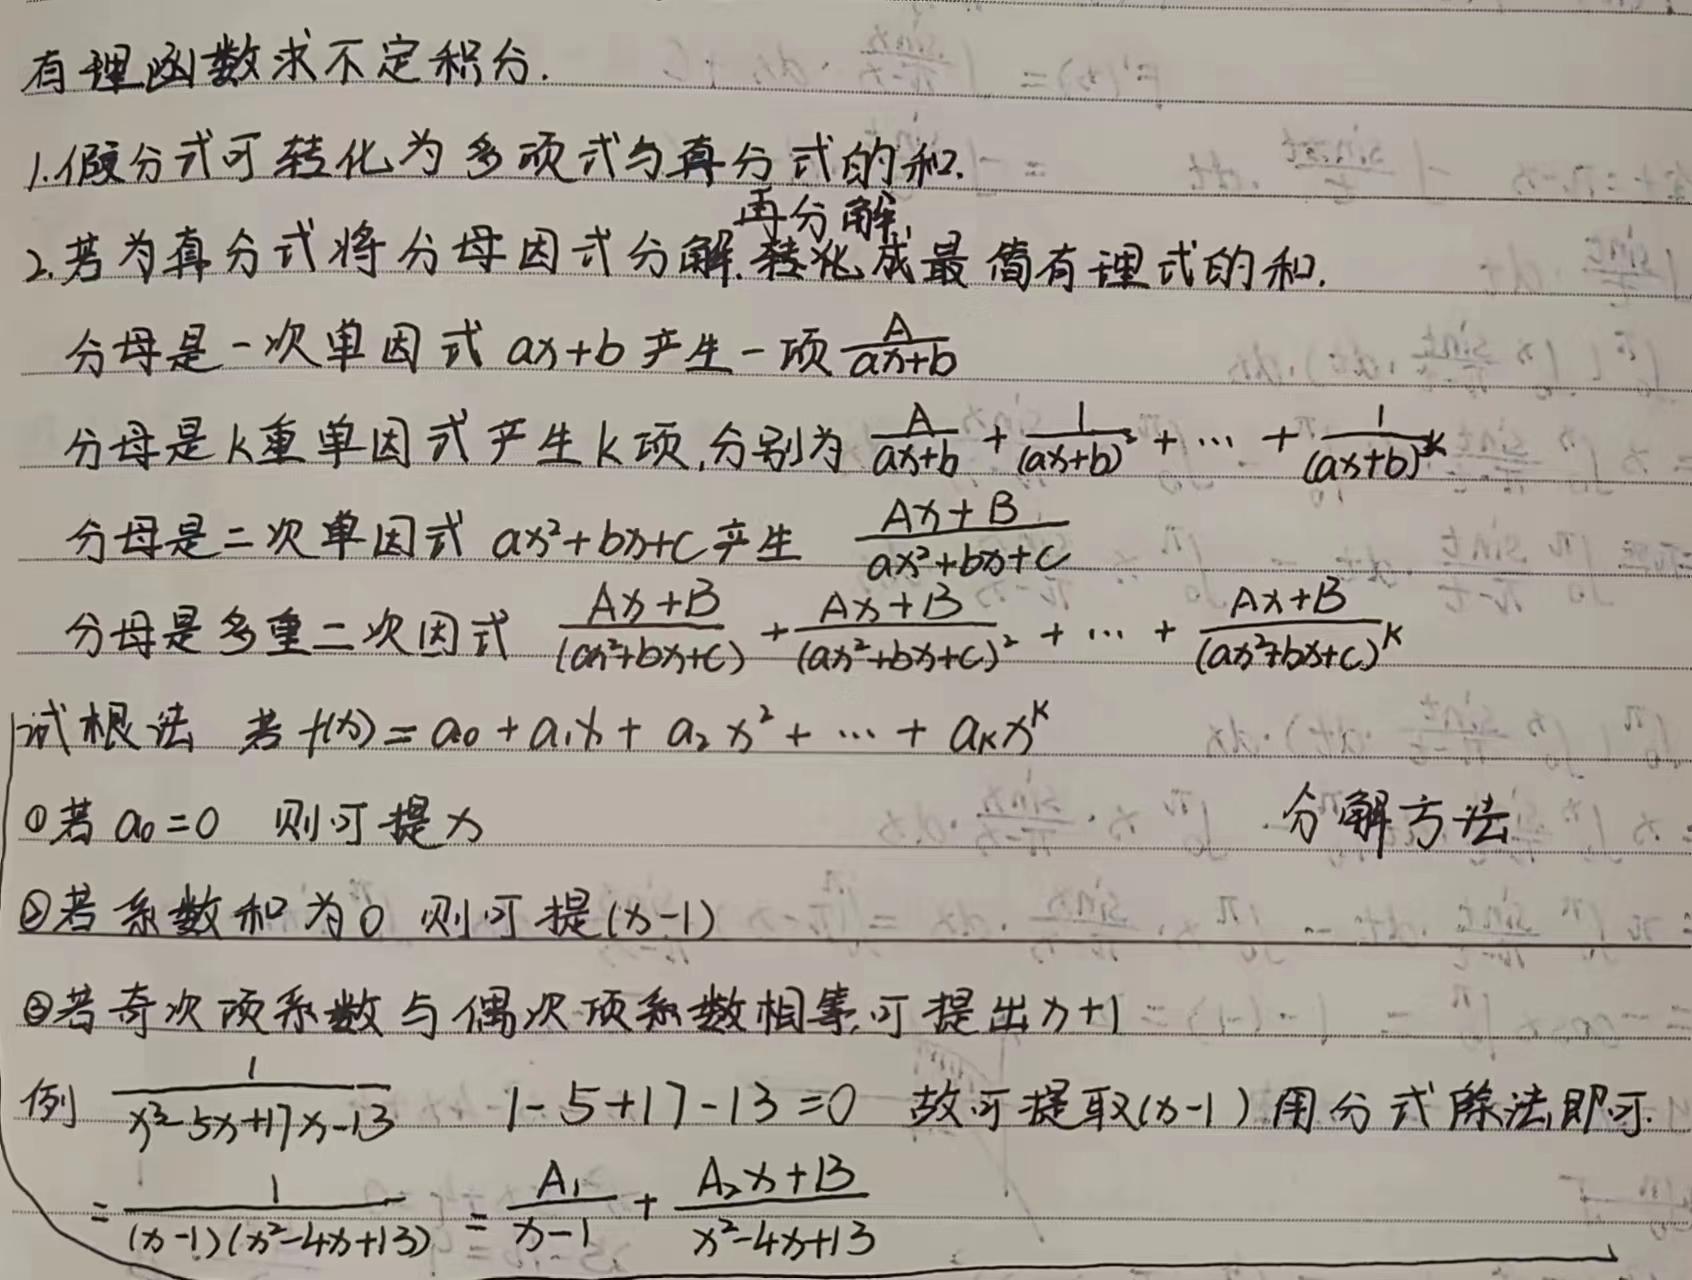 有理函数求不定积分.
1.假分式可转化为多项式与真分式的和.
再分解,
2.若为真分式将分母因式分解.转化成最简有理式的和.
分母是一次单因式 ax+b 产生一项 A/(ax+b)
分母是k重单因式产生k项,分别为 A/(ax+b) + 1/(ax+b)² + … + 1/(ax+b)^k
分母是二次单因式 ax²+bx+c 产生 (Ax+B)/(ax²+bx+c)
分母是多重二次因式 (Ax+B)/(ax²+bx+c) + (Ax+B)/(ax²+bx+c)² + … + (Ax+B)/(ax²+bx+c)^k
试根法 若f(x)=a₀+a₁x+a₂x²+…+aₖx^k
①若a₀=0 则可提x 分解方法
②若系数和为0 则可提(x-1)
③若奇次项系数与偶次项系数相等,可提出x+1
例 1/(x³-5x+17x-13) 1-5+17-13=0 故可提取(x-1)用分式除法即可.
= 1/((x-1)(x²-4x+13)) = A₁/(x-1) + (A₂x+B)/(x²-4x+13)